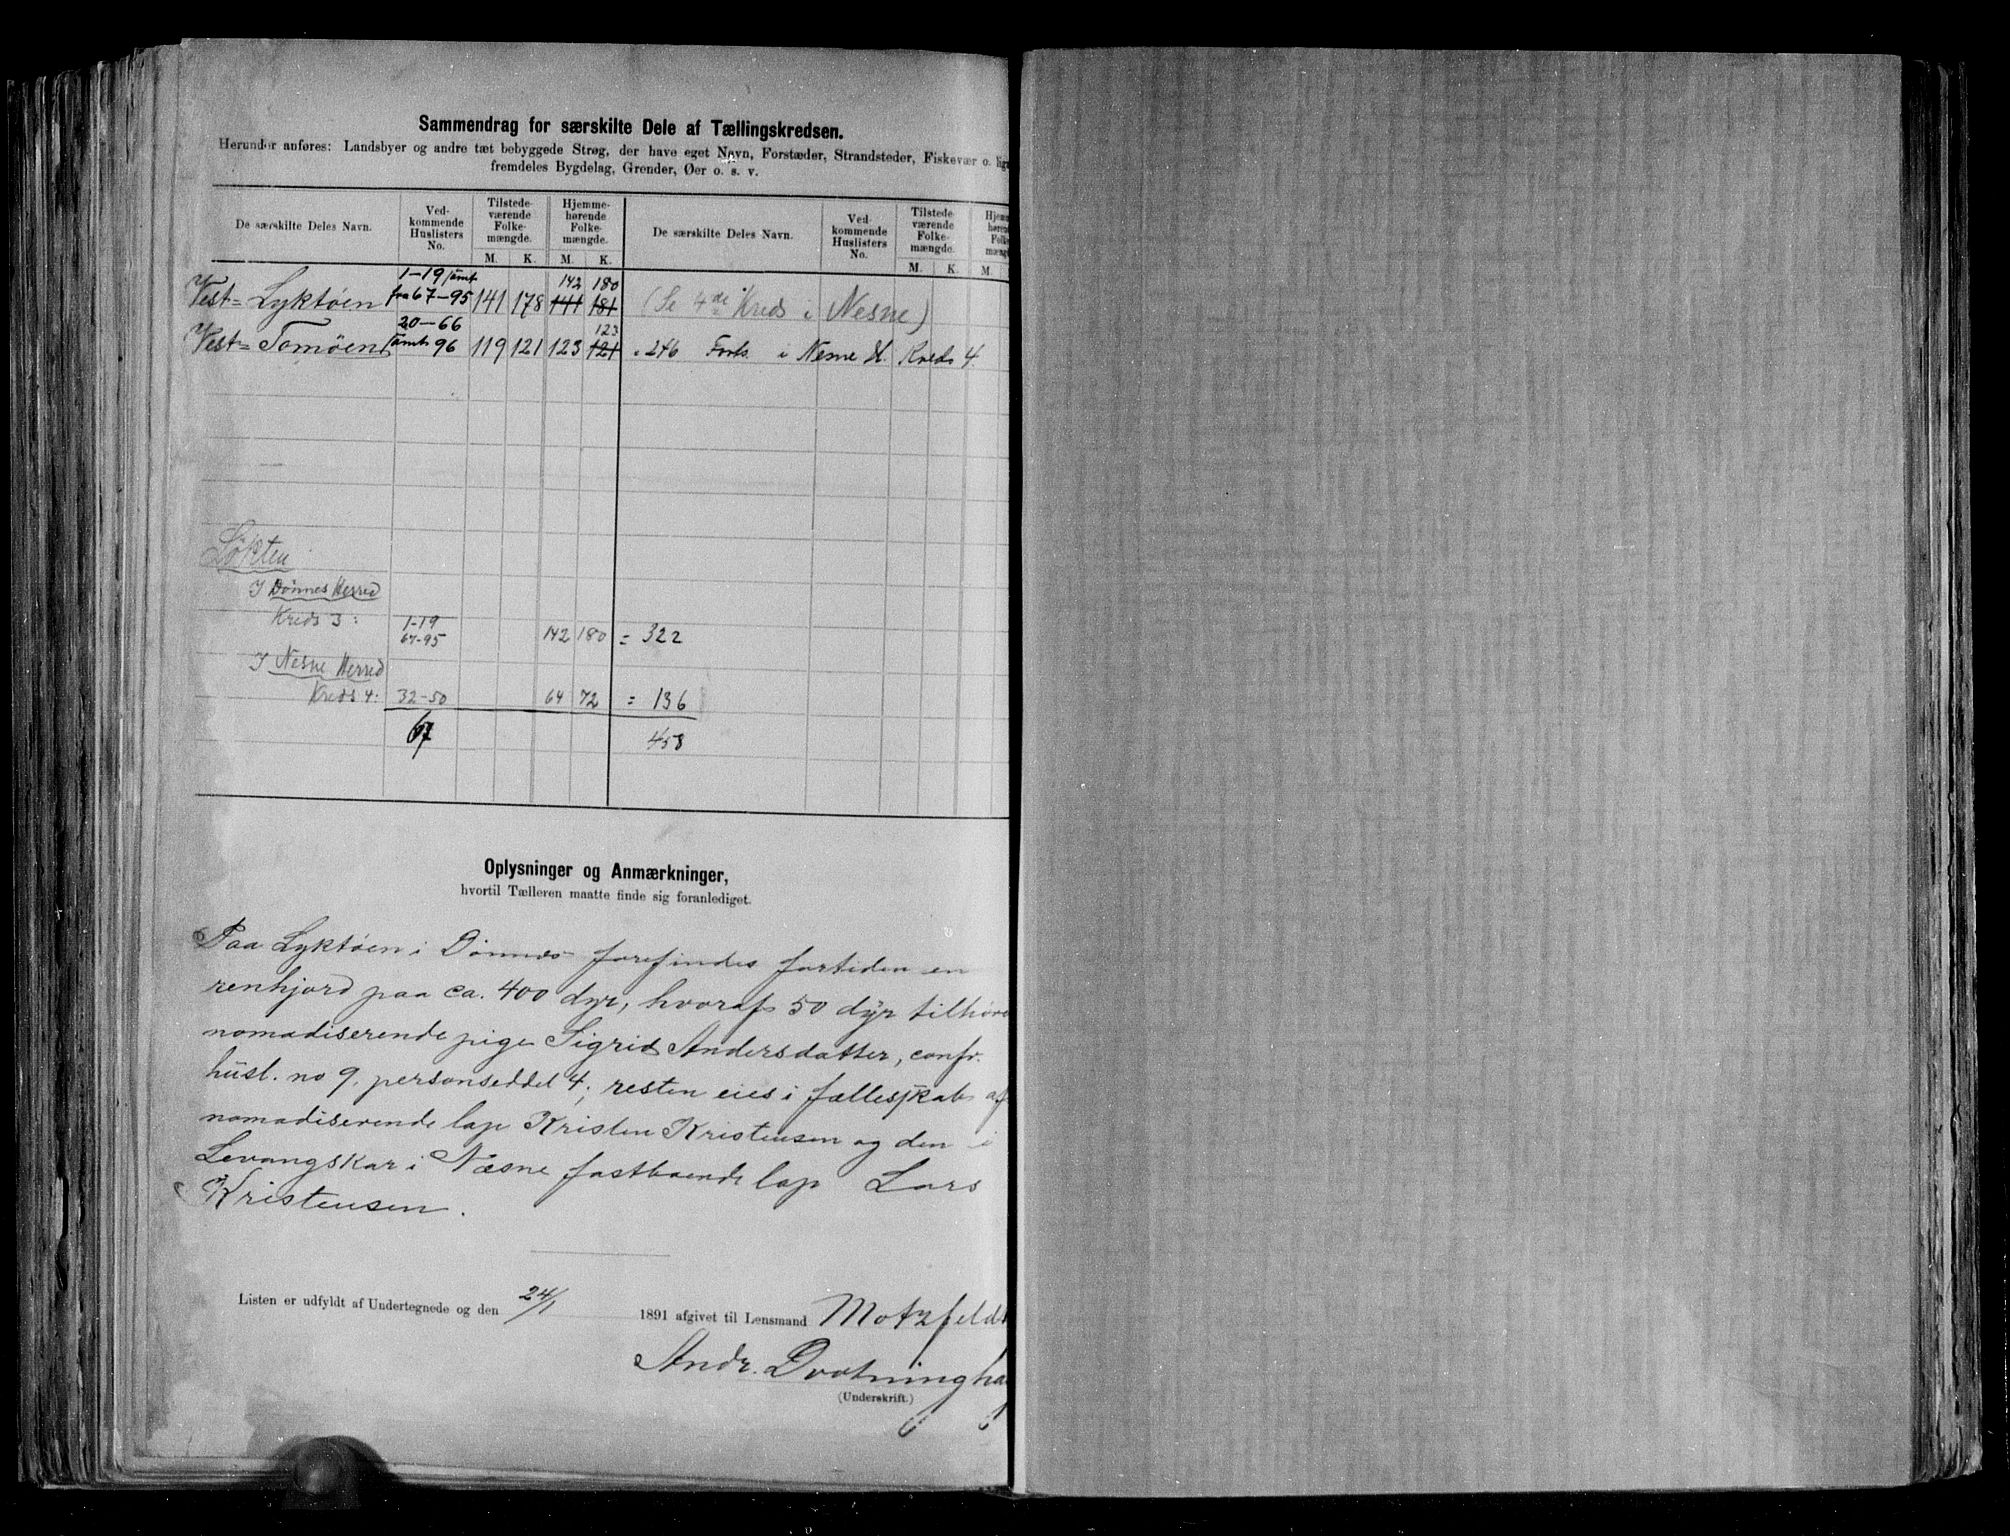 Sammendrag for særskilte Dele af Tællingskredsen.
Herunder anføres: Landsbyer og andre tæt bebyggede Strøg, der have eget Navn, Forstæder, Strandsteder, Fiskevær o. lign
fremdeles Bygdelag, Grender, Øer o. s. v.
De særskilte Deles Navn. Ved-kommende Huslisters No. Tilstede-værende Folke-mængde. Hjemme-hørende Folke-mængde. De særskilte Deles Navn. Ved kommende Huslisters No. Tilstede værende Folke-mængde. Hjem høren Folk mængd
M. K. M. K. M. K. M.
1-19 samt 142 180
Vest= Lyktøen fra 67-95 141 178 141 181 (Se 4de Kreds i Nesne)
20-66 123
Vest= Tomøen samt 96 119 121 123 121 . 246 Forts. i Nesne H. Kreds 4.
Løkten
I Dønnes Herred
Kreds 3: 1-19
67-95 142 180 = 322
I Nesne Herred
Kreds 4: 32-50 64 72 = 136
67 458
Oplysninger og Anmærkninger,
hvortil Tælleren maatte finde sig foranlediget.
Paa Lyktøen i Dønnes forefindes fortiden en
renhjord paa ca. 400 dyr, hvoraf 50 dyr tilhøre
nomadiserende pige Sigrid Andersdatter, confr.
husl. no 9, personseddel 4; resten eies i fællesskab af
nomadiserende lap Kristen Kristensen og den i
Levangskar i Næsne fastboende lap Lars
Kristensen.
Listen er udfyldt af Undertegnede og den 24/1 1891 afgivet til Lensmand Motzfeld
Andr. Drotningha
(Underskrift.)